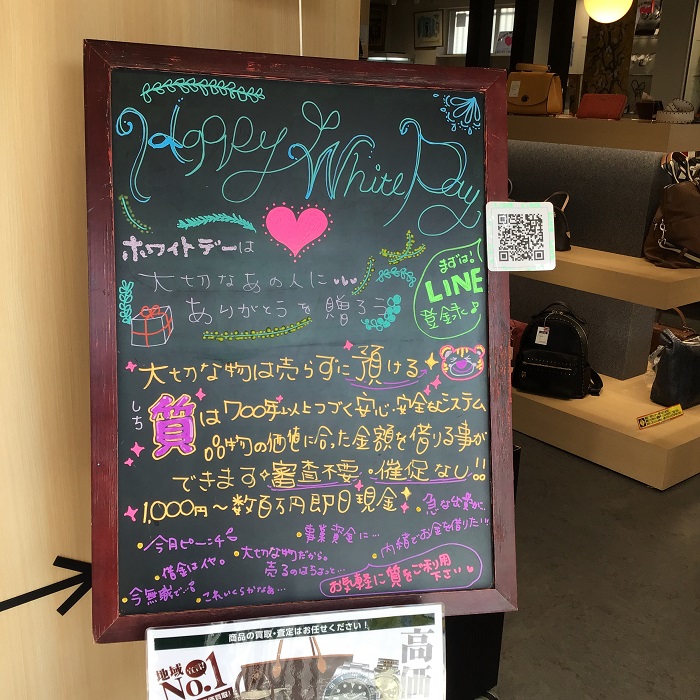 Happy White Day
ホワイトデーは
大切なあの人に
ありがとうを贈ろう
まずは!
LINE
登録を♪
大切な物は売らずに預ける
しち
質は700年以上つづく安心・安全なシステム
品物の価値に合った金額を借りる事が
できます 審査不要・催促なし!!
1,000円〜数百万円即日現金
・急な出費が、
・今月ピーンチ
・事業資金に…
・内緒でお金を借りたい!!
・大切な物だから。
売るのはちょっと…
・借金は他の
・今無職で…
・これいくらかなぁ…
お気軽に質をご利用
下さい
商品の買取・査定はお任せください!
地域
No.1
高価